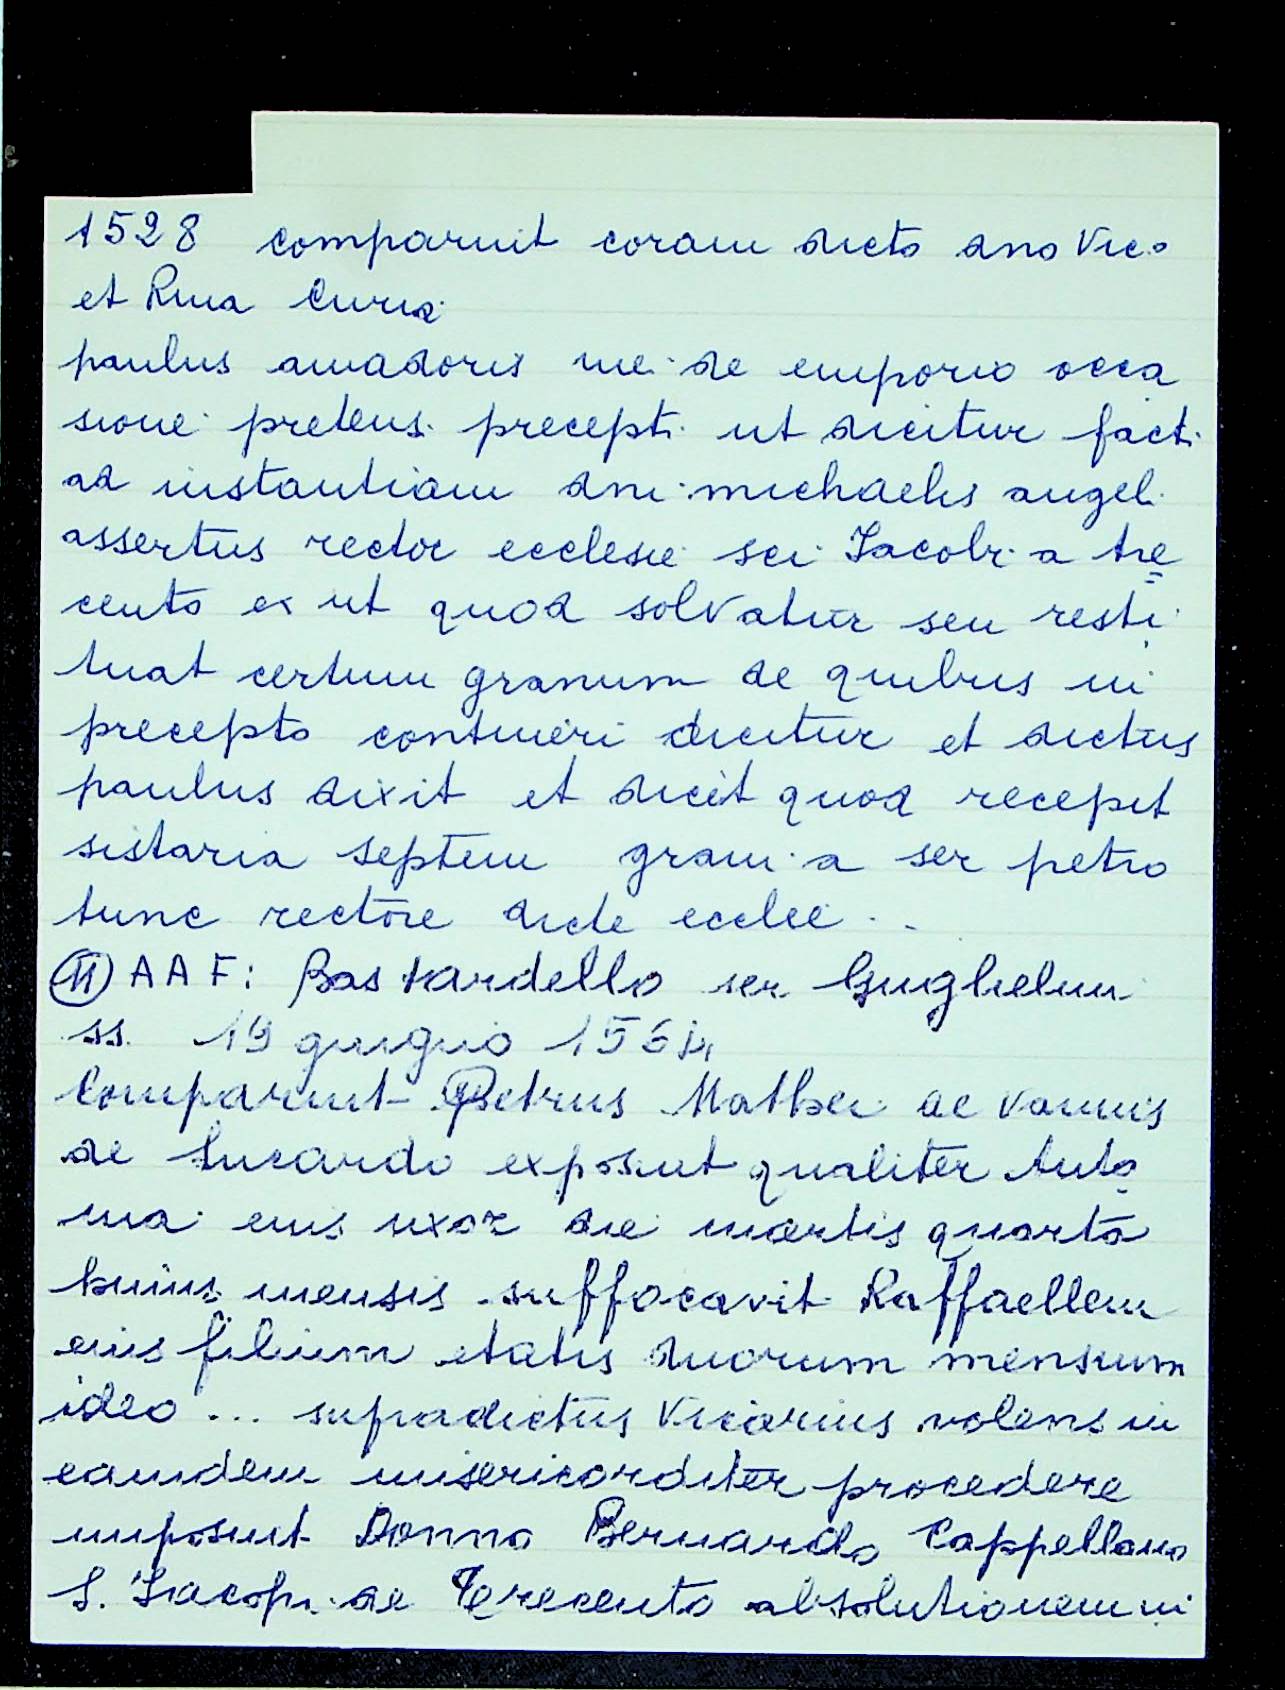 1528 comparuit coram dicto dno Vic.o
et Rma Curia.
paulus amadoris mei de emporio occa
sione pretens. precepti. ut dicitur fact.
ad instantiam dni michaelis angeli
assertus rector ecclesie sci Iacobi a tre
cento ex ut quod solvatur seu resti
tuat certum granum de quibus in
precepto contineri dicitur et dictus
paulus dixit et dicit quod recepit
sistaria septem grani a ser petro
tunc rectore dicte ecclee.
(11) AAF: Bastardello ser Guglielmi
ss. 19 giugno 1564
Comparuit Petrus Mathei de Vannis
de Lucardo exposuit qualiter Anto
nia eius uxor die martis quarta
huius mensis suffocavit Raffaellem
eius filium etatis duorum mensium
ideo ... supradictus Vicarius volens in
eamdem misericorditer procedere
imposuit Donno Bernardo Cappellano
S. Iacopi de Trecento absolutionem in